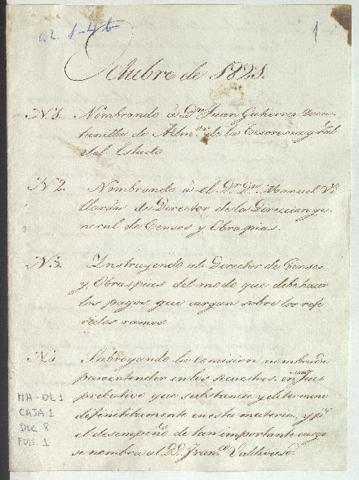 OL 1-46
1
Octubre de 1821.
N.1. Nombrando à Dn Juan Gutierres
de Admor. de la Tesoreria gral
del Estado
N.2. Nombrando à el Dor. Dn. Manuel Vi-
llarán de Director de la Direccion ge-
neral de Censos y Obras pias.
N.3. Instruyendo al Director de Censos
y Obras pias del modo que debe hacer
los pagos que cargan sobre los refe-
ridos ramos.
Subrogando la Comision nombrada
para entender en los secuestros, un Juez
pribatibo que substancie y determine
definitibamente en esta materia, y pa.
el desempeño de tan importante cargo
se nombra al D.D. Franco. Valdivieso
MH-OL 1
CAJA 1
DOC 8
FOL 1